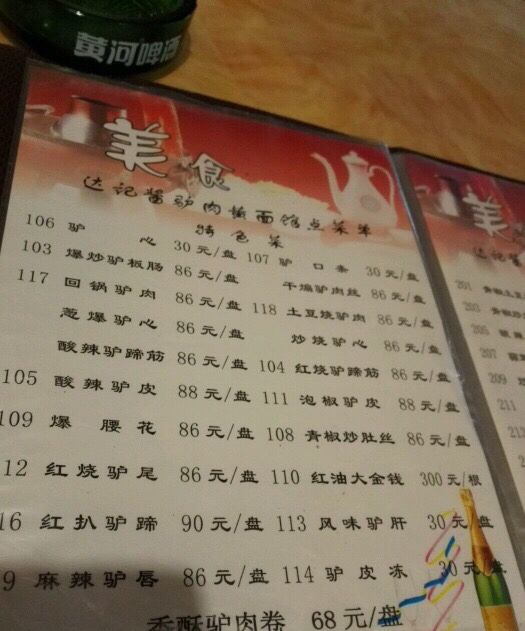 黄河啤酒
美食
达记酱驴肉黄面馆点菜单
特色菜
106 驴心 30元/盘 107 驴口条 30元/盘
103 爆炒驴板肠 86元/盘 干煸驴肉丝 86元/盘
117 回锅驴肉 86元/盘 118 土豆烧驴肉 86元/盘
葱爆驴心 86元/盘 炒烧驴心 86元/盘
酸辣驴蹄筋 86元/盘 104 红烧驴蹄筋 86元/盘
105 酸辣驴皮 88元/盘 111 泡椒驴皮 88元/盘
109 爆腰花 86元/盘 108 青椒炒肚丝 86元/盘
12 红烧驴尾 86元/盘 110 红油大金钱 300元/根
16 红扒驴蹄 90元/盘 113 风味驴肝 30元/盘
9 麻辣驴唇 86元/盘 114 驴皮冻 30元/盘
香酥驴肉卷 68元/盘
美
达记酱驴
201 青椒土豆
203
205
207
209
211
213